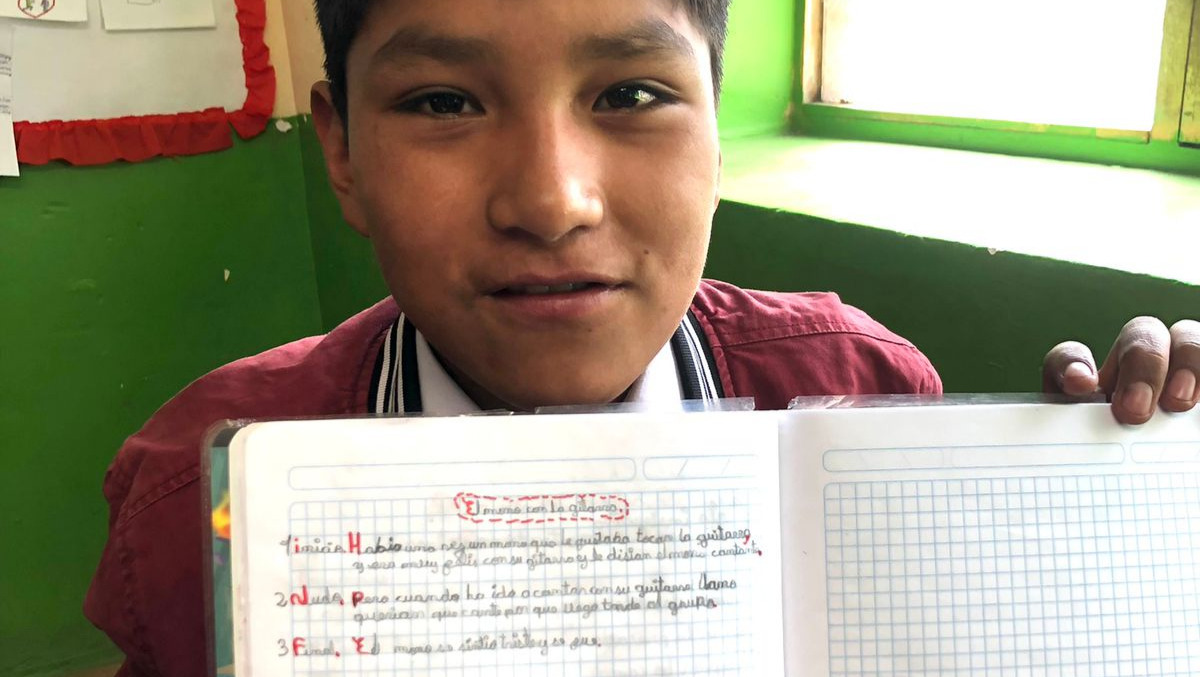 El mono con la gitarra.
1 inicio. Habia una vez un mono que le gustaba tocar la guitarra,
y era muy felis con su gitarra y le disian el mono cantante,
2 Nudo. Pero cuando ha ido a cantar con su guitarra. llamo
querian que cante por que llego tarde al grupo.
3 Final. El mono se sintio triste y se fue.